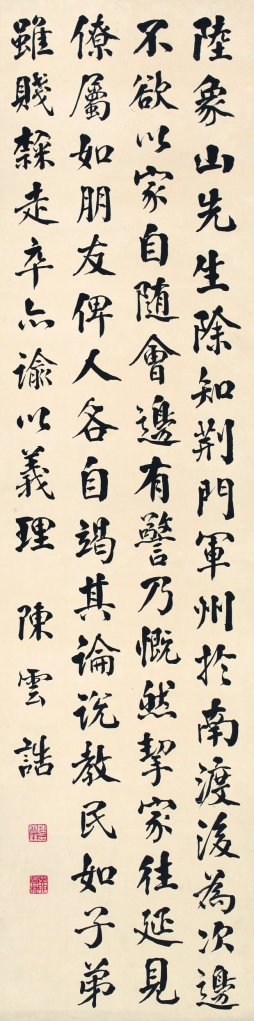 陸象山先生除知荆門軍州於南渡後為次邊
不欲以家自随會邊有警乃慨然挈家往延見
僚屬如朋友俾人各自竭其論説教民如子弟
雖賤隸走卒亦諭以義理 陳雲誥